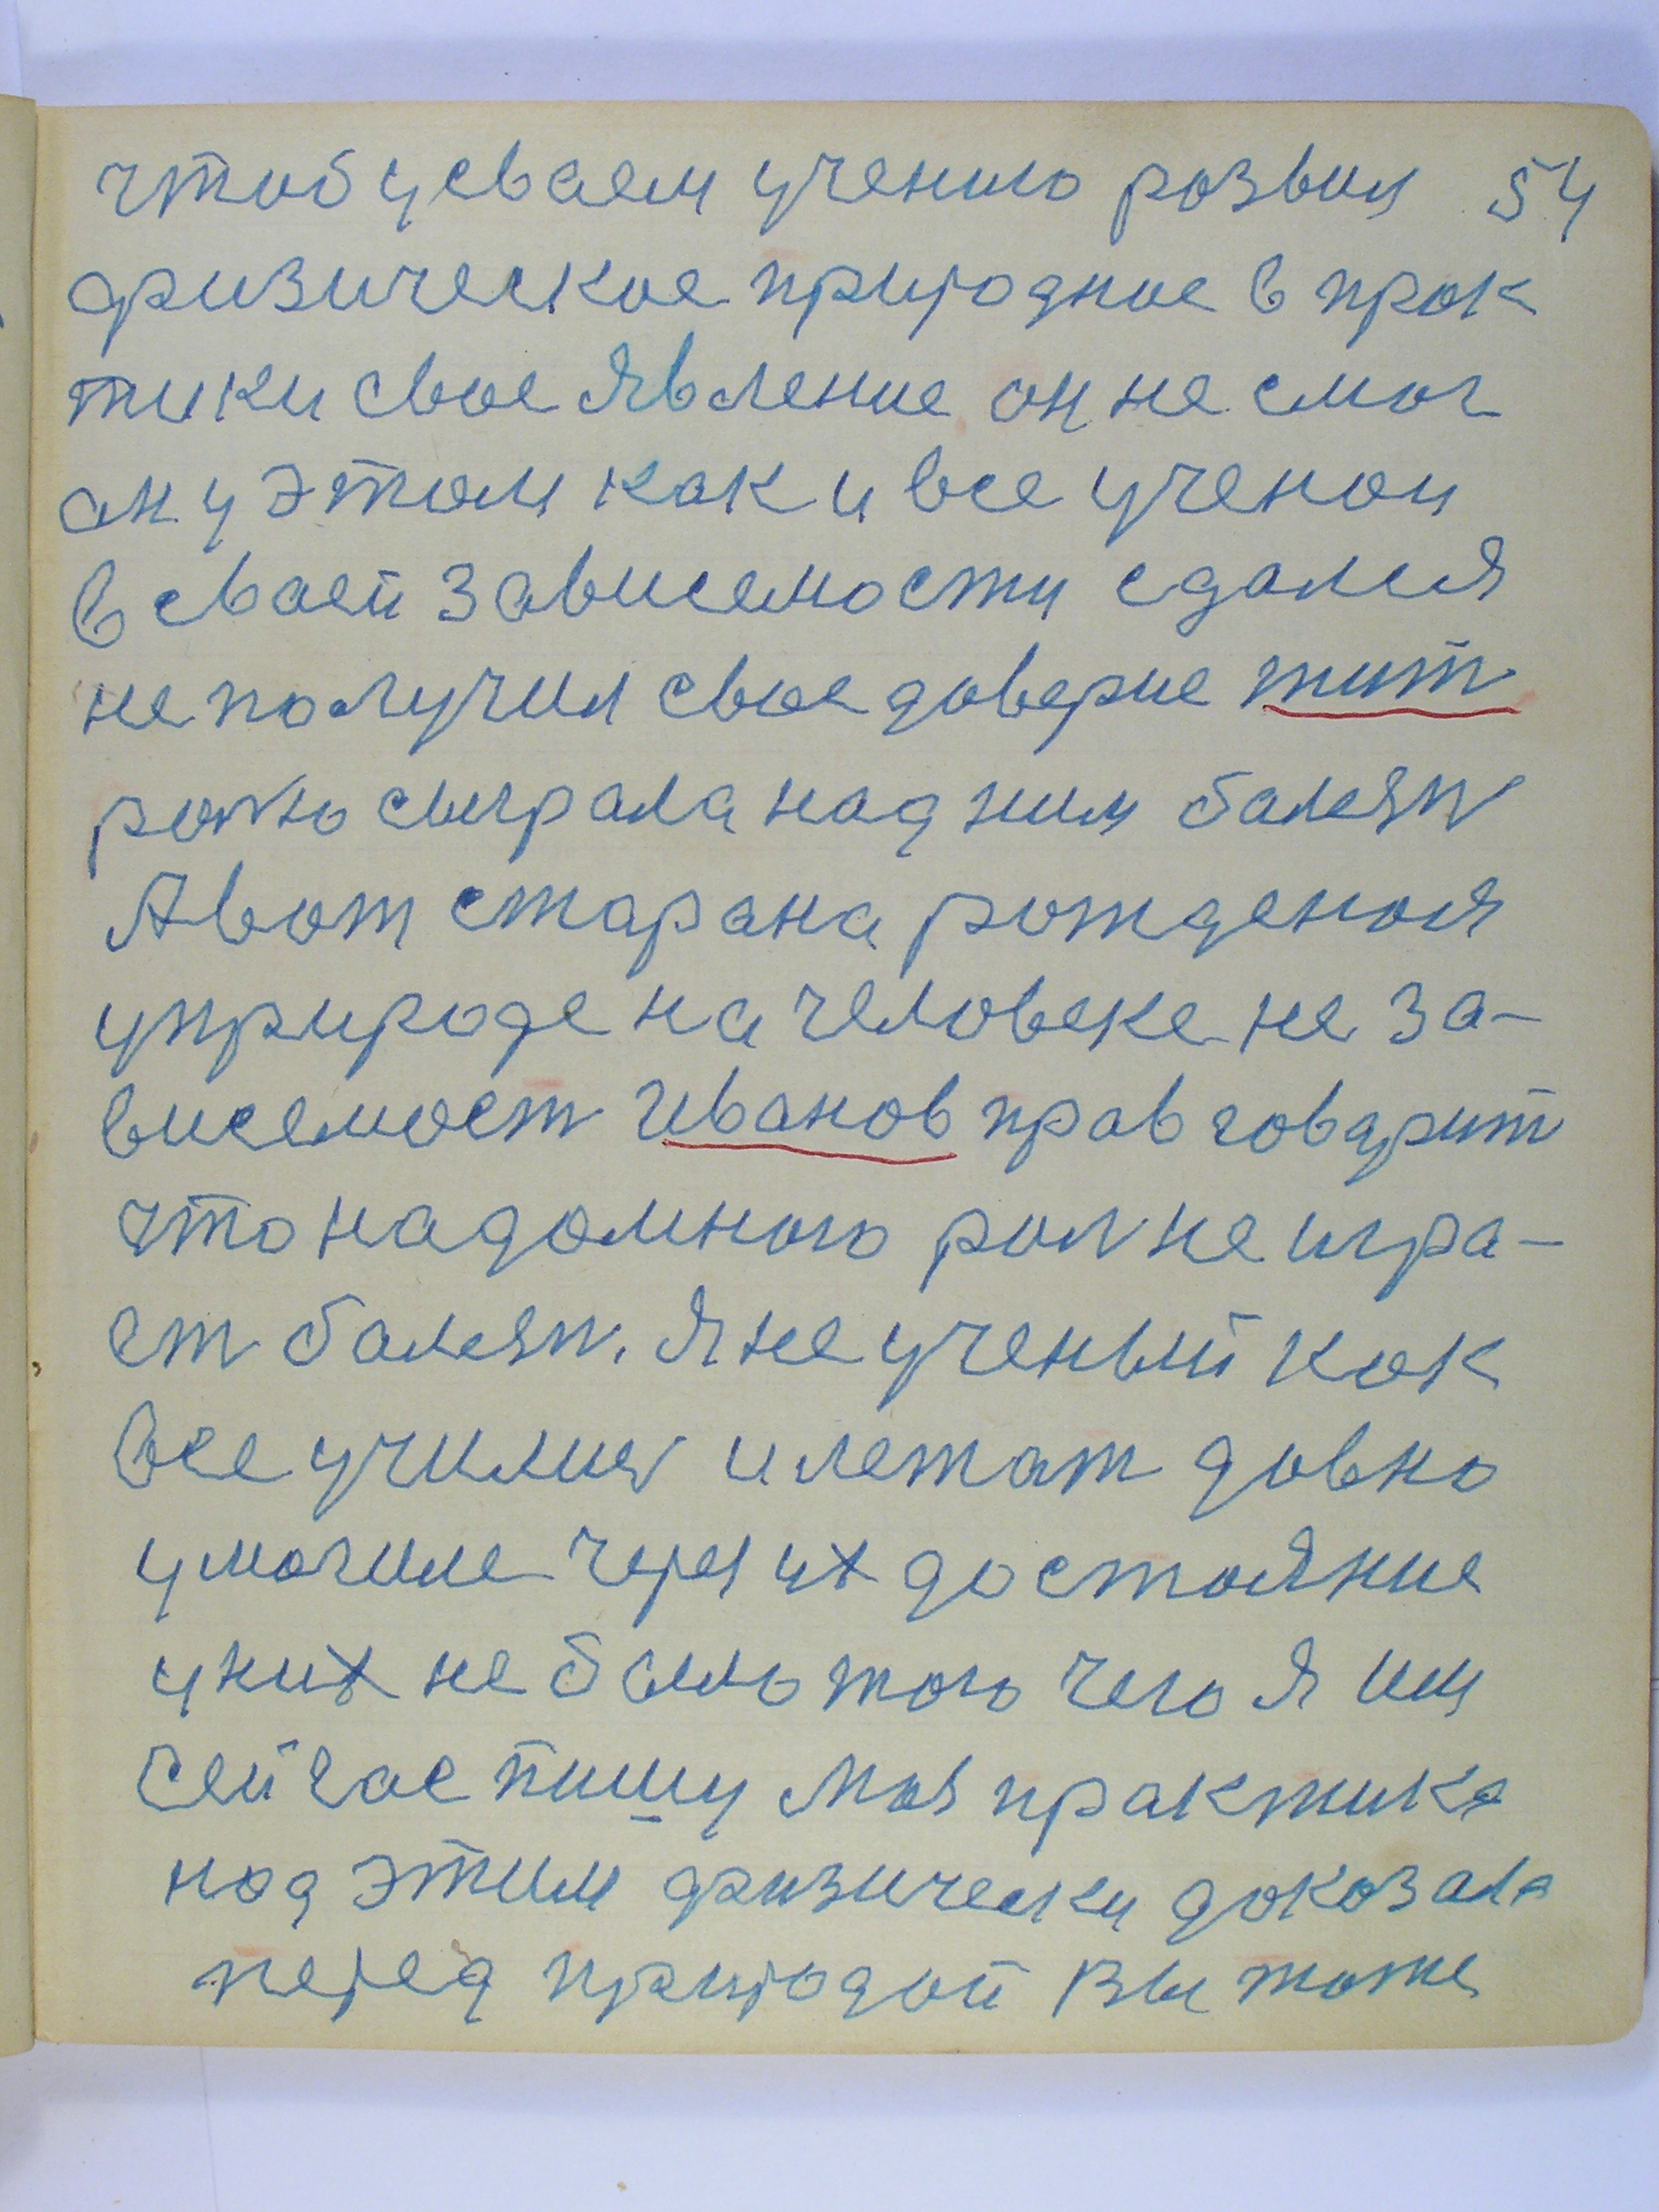 чтоб усваем учению розвил 54
физическое природное в прак
тики свое явление он не смог
он у этом как и все ученои
в сваей зависемости сдался
не получил свое доверие тит
ролю сыграла над ним балезн
А вот старана рождения
у природе на человеке не за-
висемост Иванов прав говарит
что надомною рол не игра-
ет балезн. Я не ученый как
все училис и лежат давно
у могиле через их достояние
у них не было того чего я им
сейчас пишу Моя практика
над этим физически доказала
перед природой Вы тоже